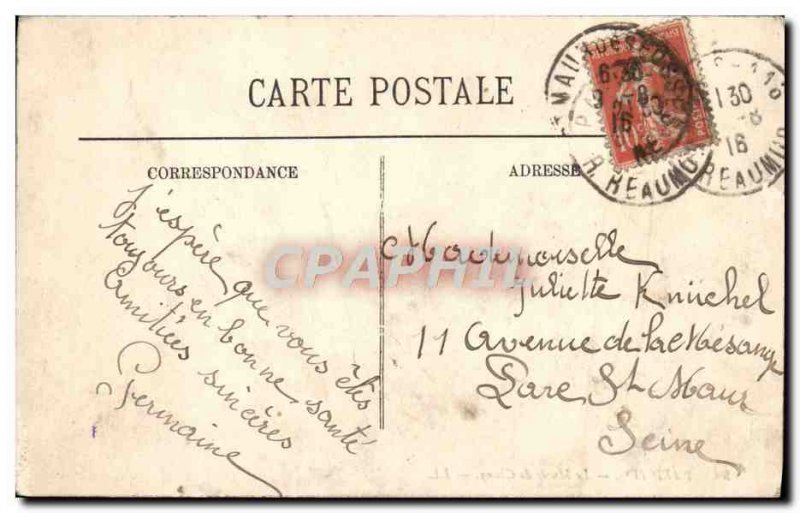 CARTE POSTALE
CORRESPONDANCE
ADRESSE
J'espère que vous êtes
toujours en bonne santé
Amitiées sincères
Germaine
Mademoiselle
Juliette Knüchel
11 Avenue de la Mésange
Parc St Maur
Seine
CPAPHIL
6-30
9-8
16
R. REAUMUR
130
16
REAUMUR